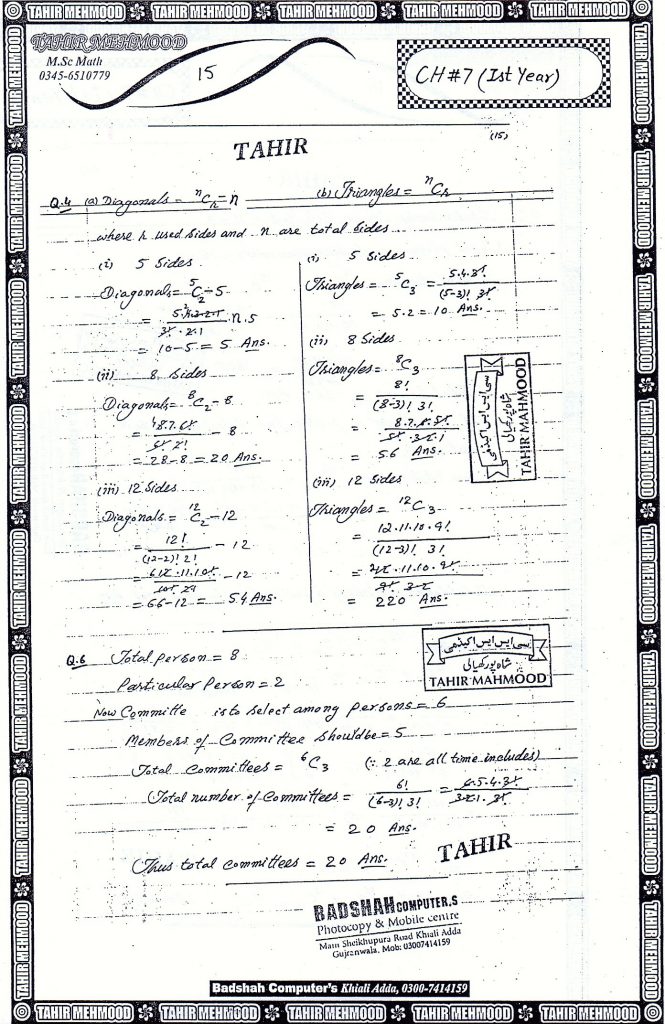 TAHIR MEHMOOD TAHIR MEHMOOD TAHIR MEHMOOD TAHIR MEHMOOD TAHIR MEHMOOD
TAHIR MEHMOOD
M.Sc Math
0345-6510779
15
CH#7 (Ist Year)
(15)
TAHIR
Q.4 (a) Diagonals = ⁿCᵣ - n
(b) Triangles = ⁿCᵣ
where r used sides and n are total sides
(i) 5 Sides
Diagonals = ⁵C₂ - 5
= 10 - 5 = 5 Ans.
(ii) 8 Sides
Diagonals = ⁸C₂ - 8
= 8.7.6! / 6! 2! - 8
= 28 - 8 = 20 Ans.
(iii) 12 Sides
Diagonals = ¹²C₂ - 12
= 12! / (12-2)! 2! - 12
= 12.11.10! / 10! 2! - 12
= 66 - 12 = 54 Ans.
(i) 5 Sides
Triangles = ⁵C₃ = 5.4.3! / (5-3)! 3!
= 5.2 = 10 Ans.
(ii) 8 Sides
Triangles = ⁸C₃
= 8! / (8-3)! 3!
= 8.7.6.5! / 5! 3.2.1
= 56 Ans.
(iii) 12 Sides
Triangles = ¹²C₃
= 12.11.10.9! / (12-3)! 3!
= 220 Ans.
سی ایس ایس اکیڈمی
شاہ پور کھیالی
TAHIR MAHMOOD
Q.6 Total person = 8
Particular Person = 2
Now Committe is to select among persons = 6
Members of Committee shouldbe = 5
Total Committees = ⁶C₃ (∵ 2 are all time includes)
Total number of Committees = 6! / (6-3)! 3! = 6.5.4.3! / 3.2.1.3!
= 20 Ans.
Thus total committees = 20 Ans.
سی ایس ایس اکیڈمی
شاہ پور کھیالی
TAHIR MAHMOOD
TAHIR
BADSHAH COMPUTER,S
Photocopy & Mobile centre
Main Sheikhupura Road Khiali Adda
Gujranwala. Mob: 03007414159
Badshah Computer's Khiali Adda, 0300-7414159
TAHIR MEHMOOD TAHIR MEHMOOD TAHIR MEHMOOD TAHIR MEHMOOD TAHIR MEHMOOD